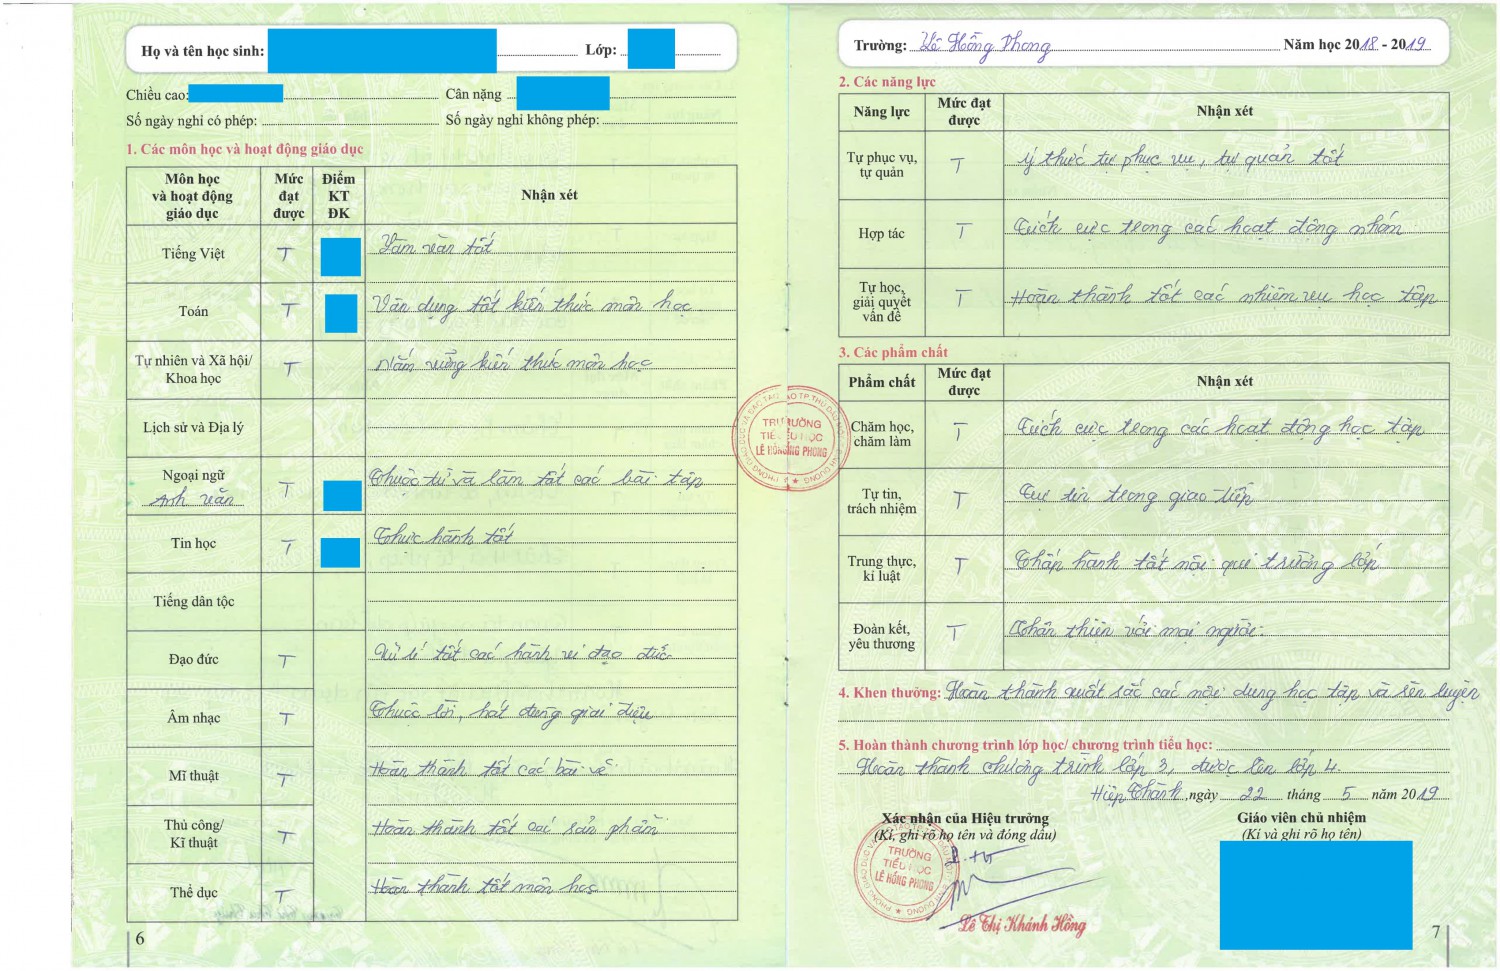 Họ và tên học sinh: Lớp:
Chiều cao: Cân nặng
Số ngày nghỉ có phép: Số ngày nghỉ không phép:
1. Các môn học và hoạt động giáo dục
Môn học và hoạt động giáo dục Mức đạt được Điểm KT ĐK Nhận xét
Tiếng Việt T Làm văn tốt
Toán T Vận dụng tốt kiến thức môn học
Tự nhiên và Xã hội/ Khoa học T Nắm vững kiến thức môn học
Lịch sử và Địa lý
Ngoại ngữ Anh văn T Thuộc từ và làm tốt các bài tập
Tin học T Thực hành tốt
Tiếng dân tộc
Đạo đức T Xử lí tốt các hành vi đạo đức
Âm nhạc T Thuộc lời, hát đúng giai điệu
Mĩ thuật T Hoàn thành tốt các bài vẽ
Thủ công/ Kĩ thuật T Hoàn thành tốt các sản phẩm
Thể dục T Hoàn thành tốt môn học
6
TRƯỜNG
TIỂU HỌC
LÊ HỒNG PHONG
Trường: Lê Hồng Phong Năm học 2018 - 2019
2. Các năng lực
Năng lực Mức đạt được Nhận xét
Tự phục vụ, tự quản T Ý thức tự phục vụ, tự quản tốt
Hợp tác T Tích cực trong các hoạt động nhóm
Tự học, giải quyết vấn đề T Hoàn thành tốt các nhiệm vụ học tập
3. Các phẩm chất
Phẩm chất Mức đạt được Nhận xét
Chăm học, chăm làm T Tích cực trong các hoạt động học tập
Tự tin, trách nhiệm T Tự tin trong giao tiếp
Trung thực, kỉ luật T Chấp hành tốt nội qui trường lớp
Đoàn kết, yêu thương T Thân thiện với mọi người.
4. Khen thưởng: Hoàn thành xuất sắc các nội dung học tập và rèn luyện
5. Hoàn thành chương trình lớp học/ chương trình tiểu học:
Hoàn thành chương trình lớp 3, được lên lớp 4.
Hiệp Thành, ngày 22 tháng 5 năm 2019
Xác nhận của Hiệu trưởng Giáo viên chủ nhiệm
(Kí, ghi rõ họ tên và đóng dấu) (Kí và ghi rõ họ tên)
TRƯỜNG
TIỂU HỌC
LÊ HỒNG PHONG
Lê Thị Khánh Hồng
7